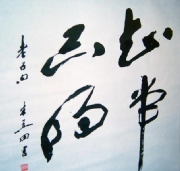 知常
曰明
老子句